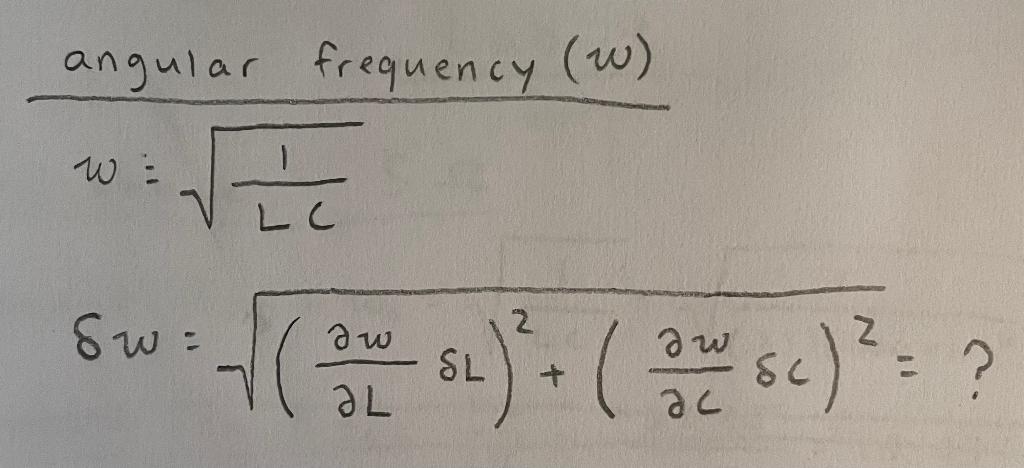 angular frequency (w)
w = √(1/(LC))
δw = √((∂w/∂L δL)² + (∂w/∂C δC)²) = ?